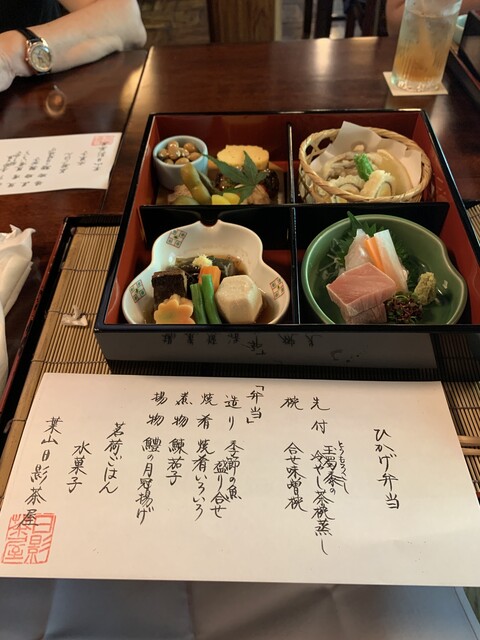 ひかげ弁当
先付 玉蜀黍の
とうもろこし
冷やし茶碗蒸し
椀 合せ味噌椀
「弁当」
造り 季節の魚
盛り合せ
焼肴 焼肴いろいろ
煮物 鰊茄子
揚物 鱧の月冠揚げ
茗荷ごはん
水菓子
葉山日影茶屋
日影茶屋